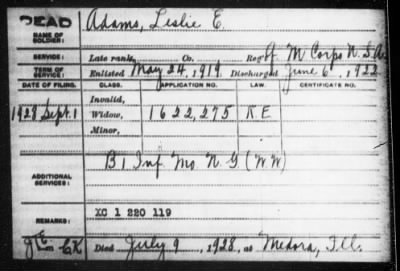 DEAD
NAME OF SOLDIER: Adams, Leslie E.
SERVICE: Late rank, Co. Reg't M Corps N.S.A.
TERM OF SERVICE: Enlisted May 24, 1919 Discharged June 6, 1922
DATE OF FILING. CLASS. APPLICATION NO. LAW. CERTIFICATE NO.
Invalid,
1928 Sept. 1 Widow, 1622,275 R E
Minor,
ADDITIONAL SERVICES: B, Inf Mo N G (WW)
REMARKS: XC 1 220 119
Died July 9, 1928, at Medora, Ill.